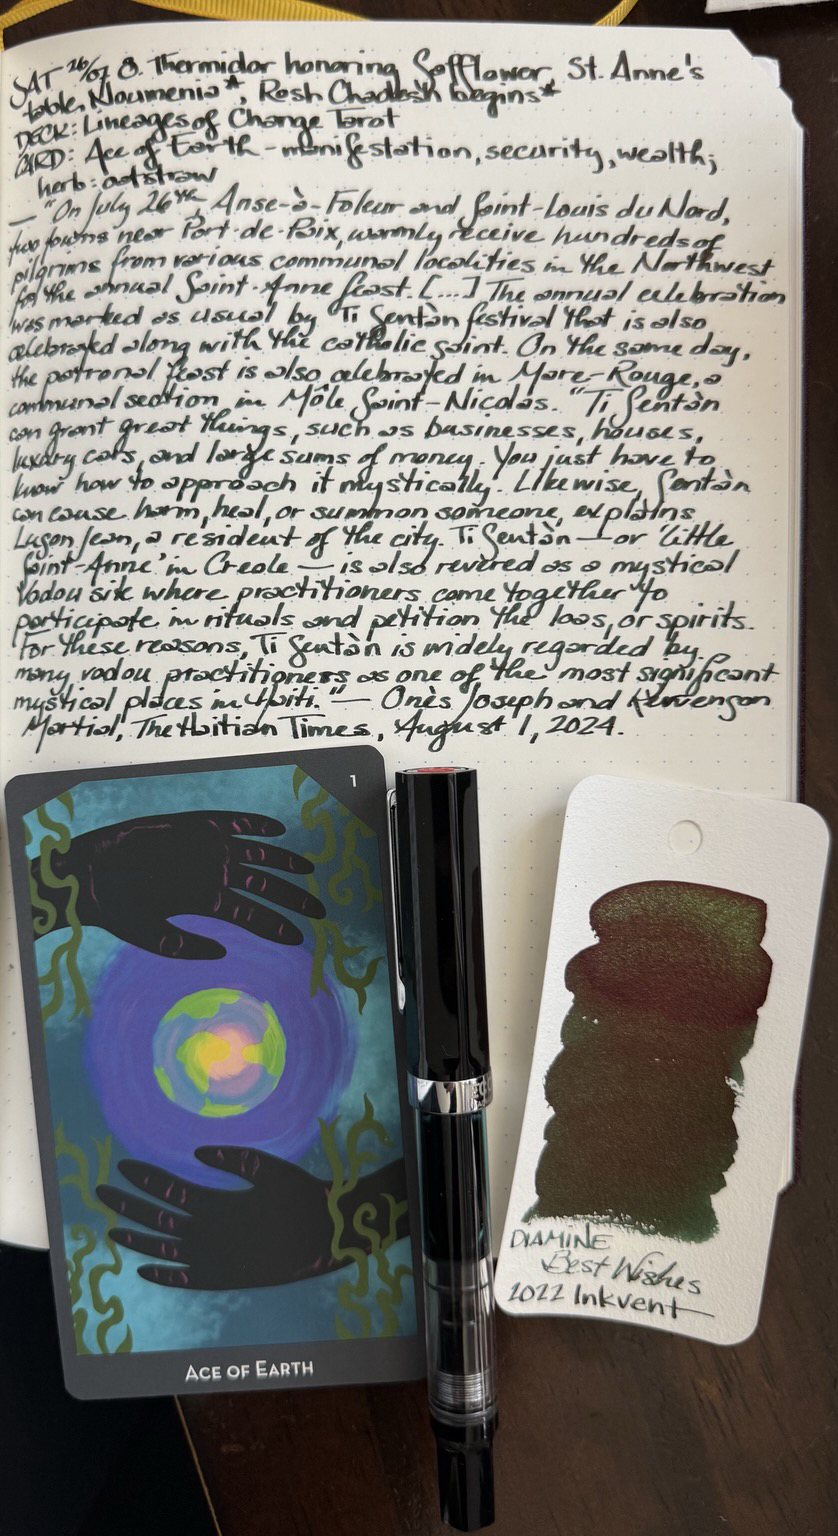 SAT 26/07 8. Thermidor honoring Safflower, St. Anne's
table, Noumenia*, Rosh Chodesh begins*
DECK: Lineages of Change Tarot
CARD: Ace of Earth - manifestation, security, wealth;
herb: oatstraw
— "On July 26th, Anse-à-Foleur and Saint-Louis du Nord,
two towns near Port-de-Paix, warmly receive hundreds of
pilgrims from various communal localities in the Northwest
for the annual Saint-Anne feast. [...] The annual celebration
was marked as usual by Ti Sentàn festival that is also
celebrated along with the catholic saint. On the same day,
the patronal feast is also celebrated in Mare-Rouge, a
communal section in Môle Saint-Nicolas. "Ti Sentàn
can grant great things, such as businesses, houses,
luxury cars, and large sums of money. You just have to
know how to approach it mystically. Likewise, Sentàn
can cause harm, heal, or summon someone, explains
Lugon Jean, a resident of the city. Ti Sentàn — or 'little
Saint-Anne' in Creole — is also revered as a mystical
Vodou site where practitioners come together to
participate in rituals and petition the loas, or spirits.
For these reasons, Ti Sentàn is widely regarded by
many vodou practitioners as one of the most significant
mystical places in Haiti." — Onès Joseph and Kervenson
Martial, The Haitian Times, August 1, 2024.
1
ACE OF EARTH
DIAMINE
Best Wishes
2022 Inkvent